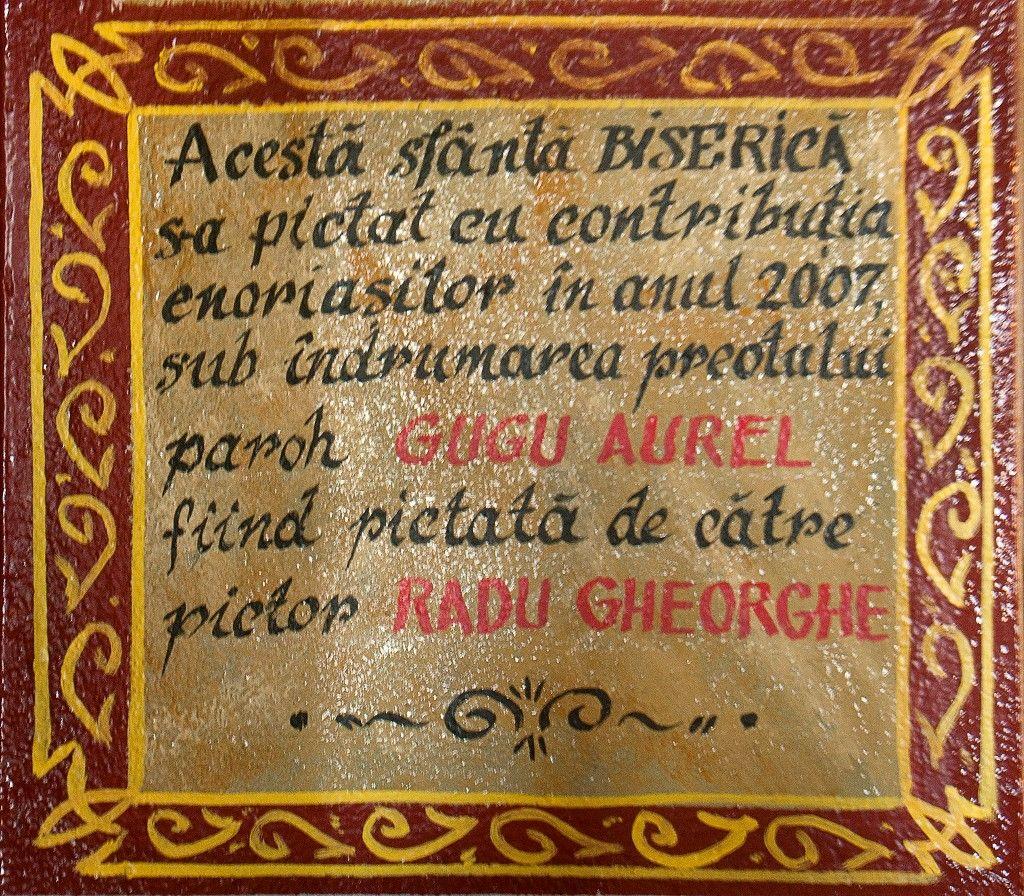 Acestă sfântă BiSERiCĂ
s-a pictat cu contribuția
enoriașilor în anul 2007,
sub îndrumarea preotului
paroh GUGU AUREL
fiind pictată de către
pictor RADU GHEORGHE